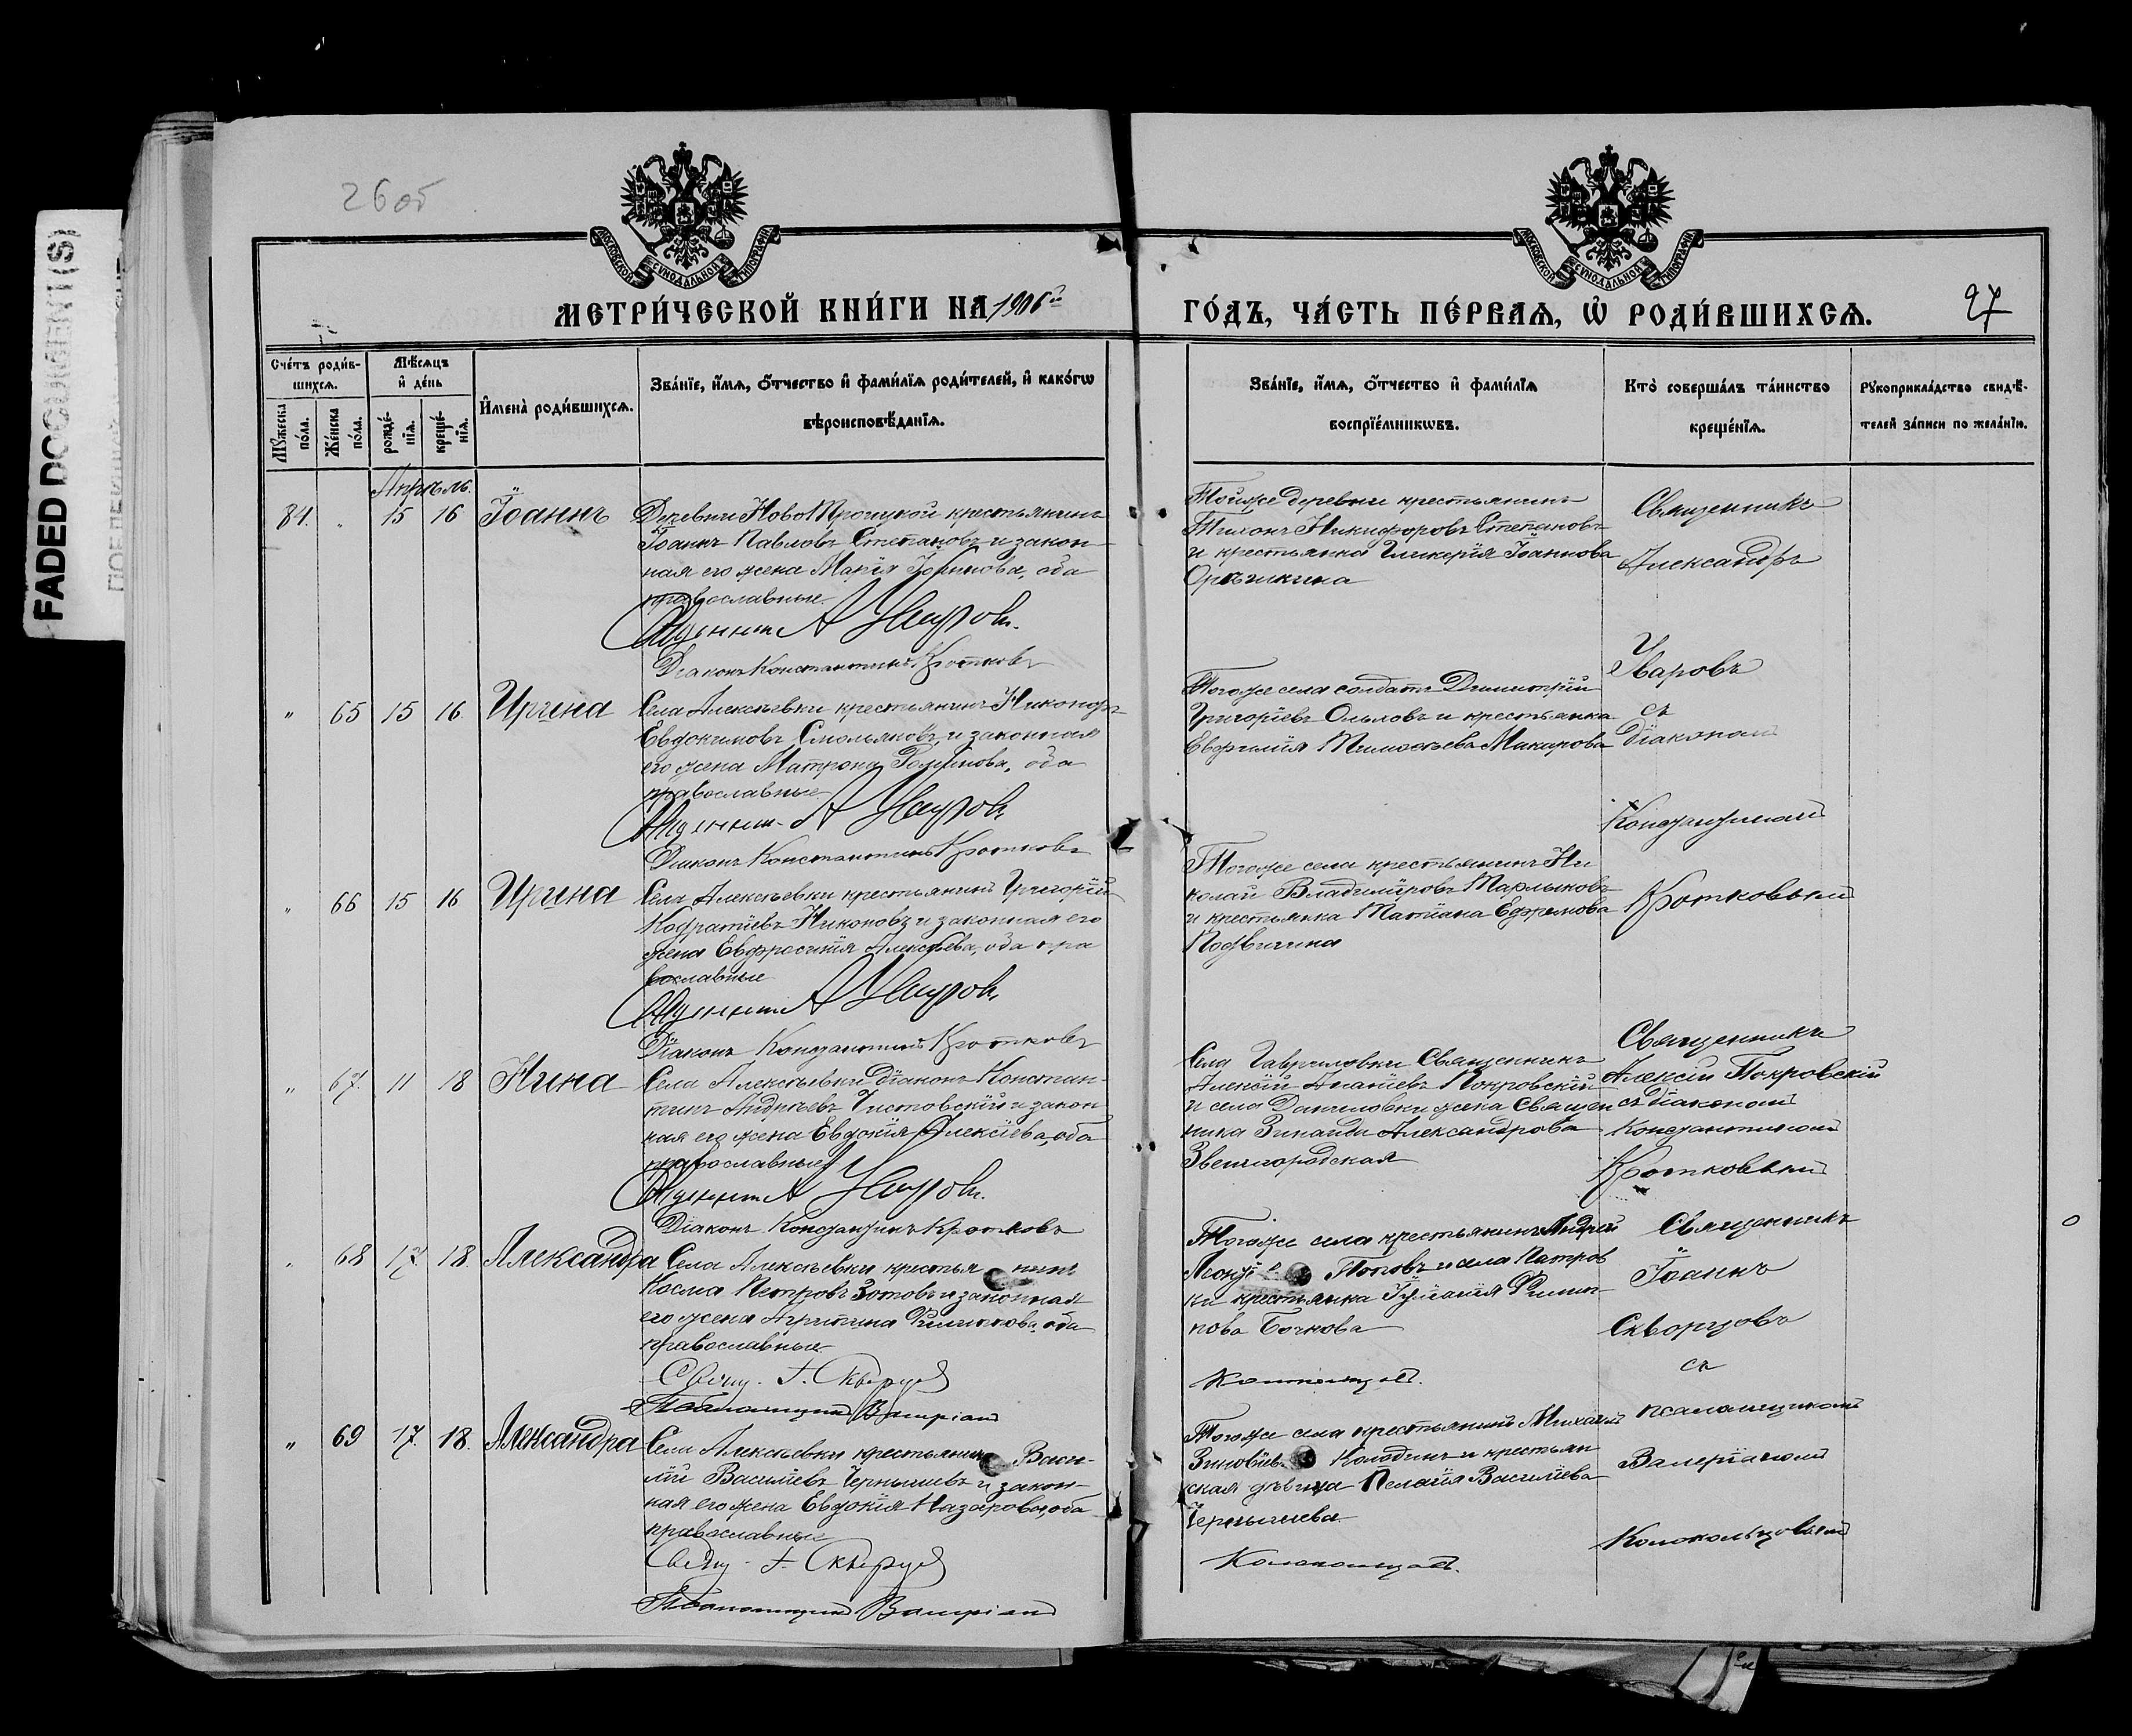 FADED DOCUMENT(S)
26 об
МОСКОВСКОЙ СУНОДАЛЬНОЙ ТИПОГРАФІИ
МОСКОВСКОЙ СУНОДАЛЬНОЙ ТИПОГРАФІИ
МЕТРИ́ЧЕСКОЙ КНИ́ГИ НА 1906й ГО́ДЪ, ЧА́СТЬ ПЕ́РВАѦ, Ѡ РОДИ́ВШИХСѦ.
27
Сче́тъ роди́в-
шихсѧ.
Мꙋжеска по́ла.
Же́нска по́ла.
Мѣ́сѧцъ
и́ де́нь
рожде́-
нїѧ.
креще́-
нїѧ.
И҆мена̀ роди́вшихсѧ.
Зва́нїе, и҆́мѧ, ѻ҆́тчество и҆ фами́лїѧ роди́телей, и҆ како́гѡ
вѣроисповѣ́данїѧ.
Зва́нїе, и҆́мѧ, ѻ҆́тчество и҆ фами́лїѧ
воспрїе́мникѡвъ.
Кто̀ соверша́лъ та́инство
креще́нїѧ.
Рꙋкоприкла́дство свидѣ́-
телей за́писи по жела́нїю.
Апрѣль.
84. " 15 16 Іоаннъ
Деревни НовоТроицкой крестьянинъ
Іоаннъ Павловъ Степановъ и закон-
ная его жена Марія, оба
православные.
А Уваровъ.
Діаконъ Константинъ Кротковъ
Тойже деревни крестьянинъ
Тихонъ Никифоровъ Степановъ
и крестьянка Гликерія Іоаннова
Орѣшкина
Священникъ
Александръ
Уваровъ
съ
діакономъ
Константиномъ
Кротковымъ
" 65 15 16 Ирина
Села Алексѣевки крестьянинъ Никоноръ
Евдокимовъ Смольяковъ, и законная
его жена Матрона, оба
православные
А Уваровъ
Діаконъ Константинъ Кротковъ
Тогоже села солдатъ Димитрій
Григоріевъ и крестьянка
Макарова
" 66 15 16 Ирина
Села Алексѣевки крестьянинъ Григорій
Кодратіевъ Никоновъ и законная его
жена Евфросинія Алексѣева, оба пра
вославные
А Уваровъ
Діаконъ Константинъ Кротковъ
Тогоже села крестьянинъ Ни
колай Владиміровъ
и крестьянка Татіана Ефремова
" 67. 11 18 Нина
Села Алексѣевки діаконъ Констан-
тинъ Андреевъ Чистовскій и закон
ная его жена Евдокія Алексіева, оба
православные
А Уваровъ.
Діаконъ Константинъ Кротковъ
Села Гавриловки Священникъ
Алексій Покровскій
и села Даниловки жена Священ
ника Зинаида Александрова
Звенигородская
Священникъ
Алексій Покровскій
съ діакономъ
Константиномъ
Кротковымъ
" 68 17. 18. Александра
Села Алексѣевки крестьянинъ
Косма Петровъ Зотовъ и законная
его жена Агрипина Филиппова, оба
православные
Свящ. І. Скворцов
Псаломщик Валеріан
Тогоже села крестьянинъ Андрей
Поповъ и села Петров
ки крестьянка Филип-
пова Бочкова
Колокольцов.
Священникъ
Іоаннъ
Скворцовъ
съ
псаломщикомъ
Валеріаномъ
Колокольцовымъ
" 69 17. 18. Александра
Села Алексѣевки крестьянинъ Васи-
лій Васильевъ Чернышевъ и закон-
ная его жена Евдокія Назарова, оба
православные
Свящ. І. Скворцов
Псаломщик Валеріан
Тогоже села крестьянинъ Михаилъ
Зиновіевъ Колодинъ и крестьян
ская дѣвица Пелагія Василіева
Чернышева
Колокольцов.